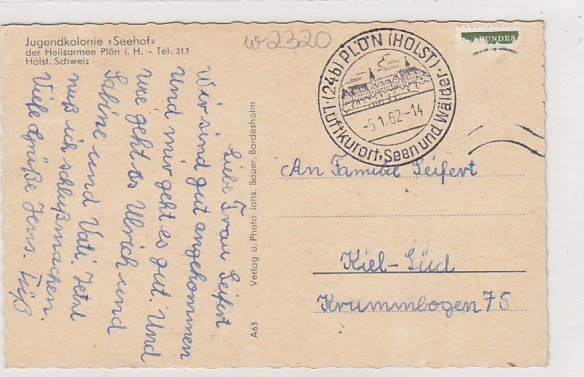 Jugendkolonie »Seehof«
der Heilsarmee Plön i. H. - Tel. 213
Holst. Schweiz
w2320
Liebe Frau Seifert.
Wir sind gut angekommen
Und mir geht es gut. Und
wie geht es Ulrich und
Sabine und Vati. Jetzt
muß ich schlußmachen.
Viele Grüße Jens. Tüß
Verlag u. Photo Johs. Bauer, Bordesholm
A63
(24b) PLÖN (HOLST)
-5.1.62-14
Luftkurort · Seen und Wälder
BUNDES
An Familie Seifert
Kiel-Süd
Krummbogen 75